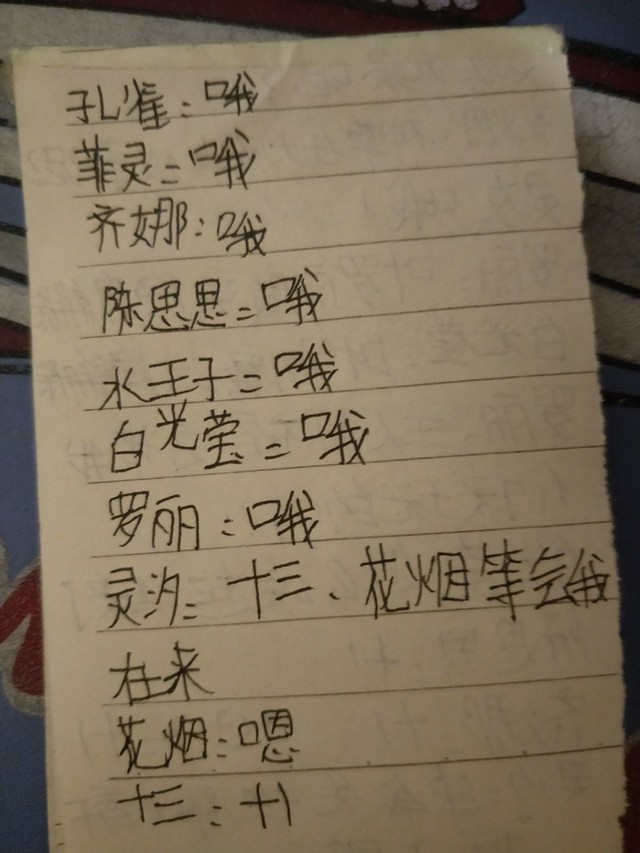 孔雀：哦
菲灵：哦
齐娜：哦
陈思思：哦
水王子：哦
白光莹：哦
罗丽：哦
灵汐：十三、花烟等会我
在来
花烟：嗯
十三：十1